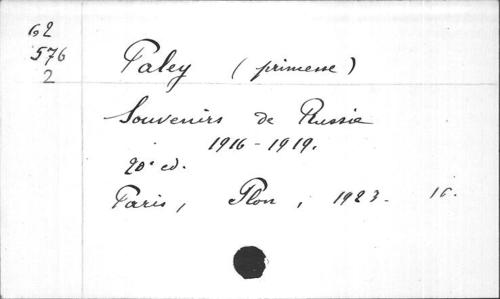 62
576
2
Paley (princesse)
Souvenirs de Russie
1916-1919.
20e ed.
Paris, Plon, 1923. 16.